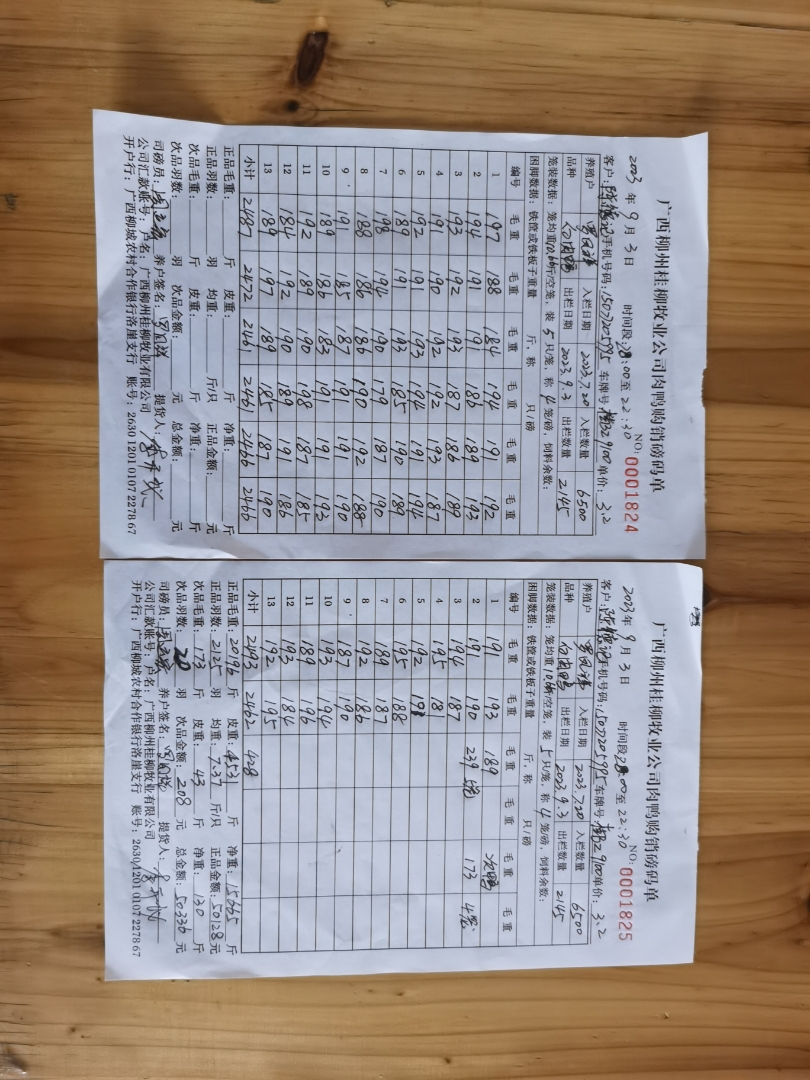 广西柳州桂柳牧业公司肉鸭购销磅码单
NO: 0001824
2023年9月3日 时间段: 20:00至22:30
客户: 手机号码: 15077205995 车牌号 桂B2900 单价: 3.2
养殖户 入栏日期 2023.7.20 入栏数量 6500
品种 白肉鸭 出栏日期 2023.9.3 出栏数量 2145
笼装数据: 笼均重10.66斤/空笼, 装5只/笼, 称4笼/磅, 饲料余数:
困脚数据: 铁镫或铁板子重量 斤, 称 只/磅
编号 毛重 毛重 毛重 毛重 毛重 毛重
1 197 188 184 194 191 192
2 194 191 191 186 189 193
3 193 192 193 187 186 189
4 191 190 192 192 193 187
5 192 191 193 194 191 194
6 189 191 193 185 190 189
7 198 194 190 179 187 190
8 188 186 186 190 192 188
9 191 185 187 191 191 190
10 189 186 183 191 191 193
11 192 189 190 198 187 185
12 184 192 190 189 191 186
13 189 197 189 185 187 190
小计 2487 2472 2461 2461 2466 2466
正品毛重: 斤 皮重: 斤 净重: 斤
正品羽数: 羽 均重: 斤/只 正品金额: 元
次品毛重: 斤 皮重: 斤 净重: 斤
次品羽数: 羽 次品金额: 元 总金额: 元
司磅员: 养户签名: 提货人:
公司汇款账号: 户名: 广西柳州桂柳牧业有限公司
开户行: 广西柳城农村合作银行洛崖支行 账号: 2630 1201 0107 2278 67
广西柳州桂柳牧业公司肉鸭购销磅码单
NO: 0001825
2023年9月3日 时间段20:00至22:30
客户: 手机号码: 15077205995 车牌号 桂B2900 单价: 3.2
养殖户 入栏日期 2023.7.20 入栏数量 6500
品种 白肉鸭 出栏日期 2023.9.3 出栏数量 2145
笼装数据: 笼均重10.66斤/空笼, 装5只/笼, 称4笼/磅, 饲料余数:
困脚数据: 铁镫或铁板子重量 斤, 称 只/磅
编号 毛重 毛重 毛重 毛重 毛重 毛重
1 191 193 189 次鸭
2 191 190 239 5笼 173 4笼
3 194 187
4 195 181
5 192 191
6 195 188
7 189 187
8 192 186
9 187 190
10 192 194
11 189 196
12 193 184
13 192 195
小计 2493 2462 428
正品毛重: 20196斤 皮重: 4531斤 净重: 15665斤
正品羽数: 2125羽 均重: 7.37斤/只 正品金额: 50128元
次品毛重: 173斤 皮重: 43斤 净重: 130斤
次品羽数: 20羽 次品金额: 208元 总金额: 50336元
司磅员: 养户签名: 提货人:
公司汇款账号: 户名: 广西柳州桂柳牧业有限公司
开户行: 广西柳城农村合作银行洛崖支行 账号: 2630 1201 0107 2278 67